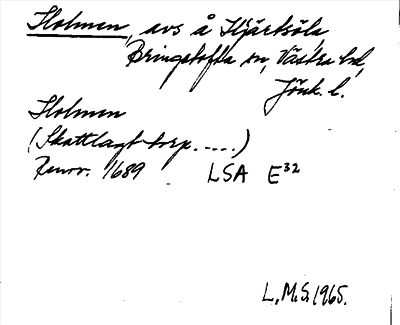 Holmen, avs å Hjärtsöla,
Bringetofta sn, Västra hd,
Jönk. l.
Holmen
(Skattlagt torp.....)
Renov. 1689 LSA E³²
L.M.S. 1965.